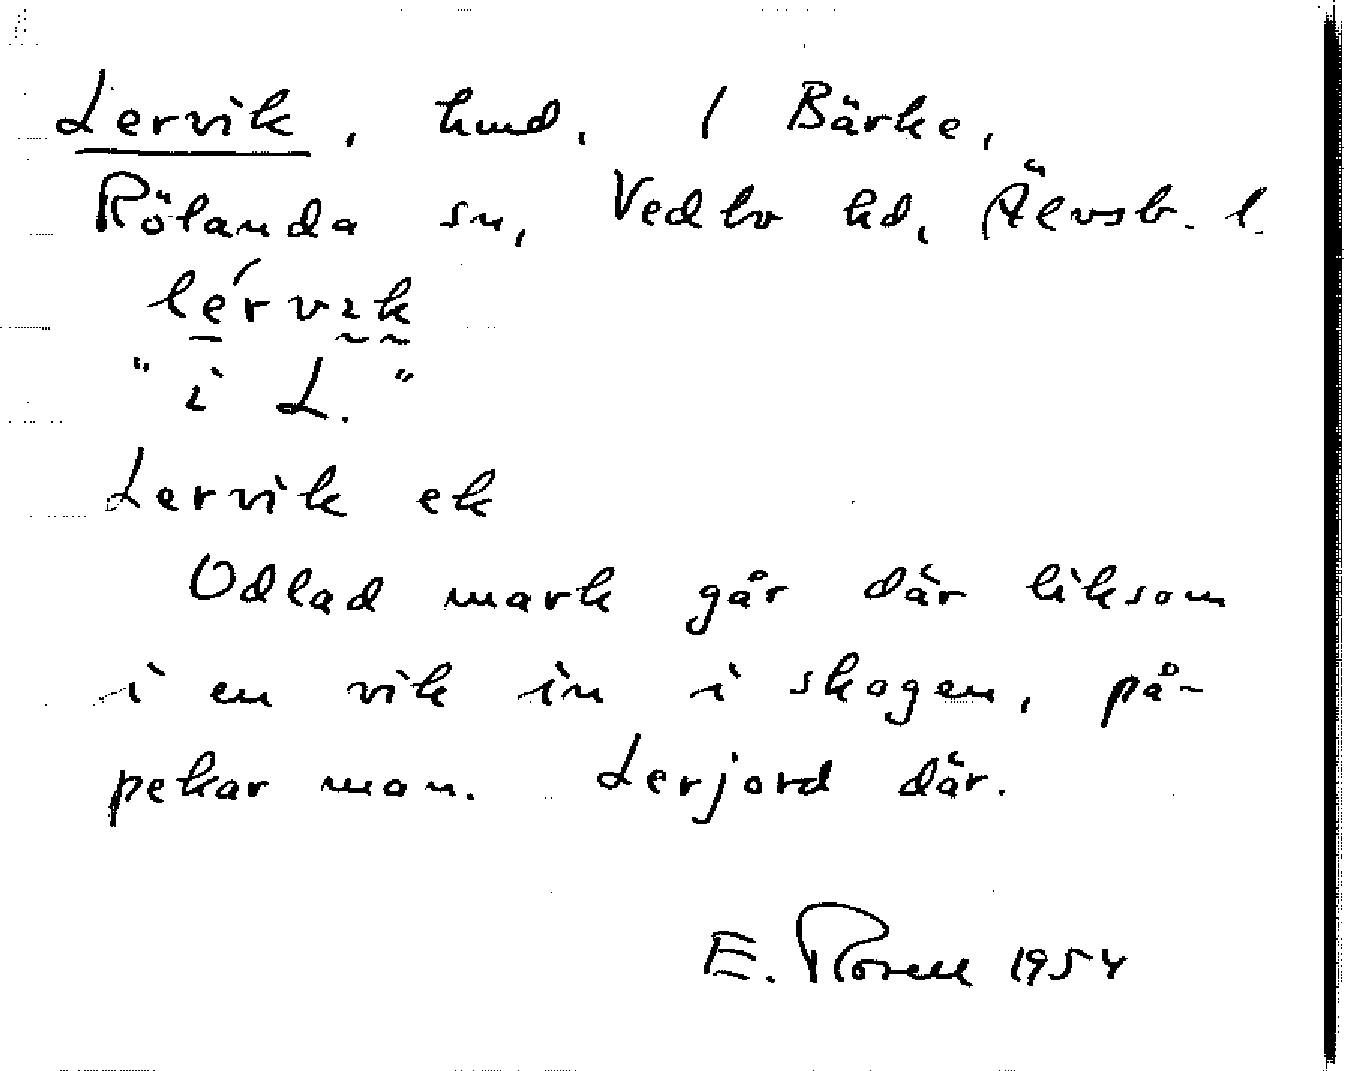 Lervik, hmd. 1 Bärke,
Rölanda sn, Vedbo hd, Älvsb. l.
lérvik
"i L."
Lervik ek
Odlad mark går där liksom
i en vik in i skogen, på-
pekar man. Lerjord där.
E. Rosell 1954